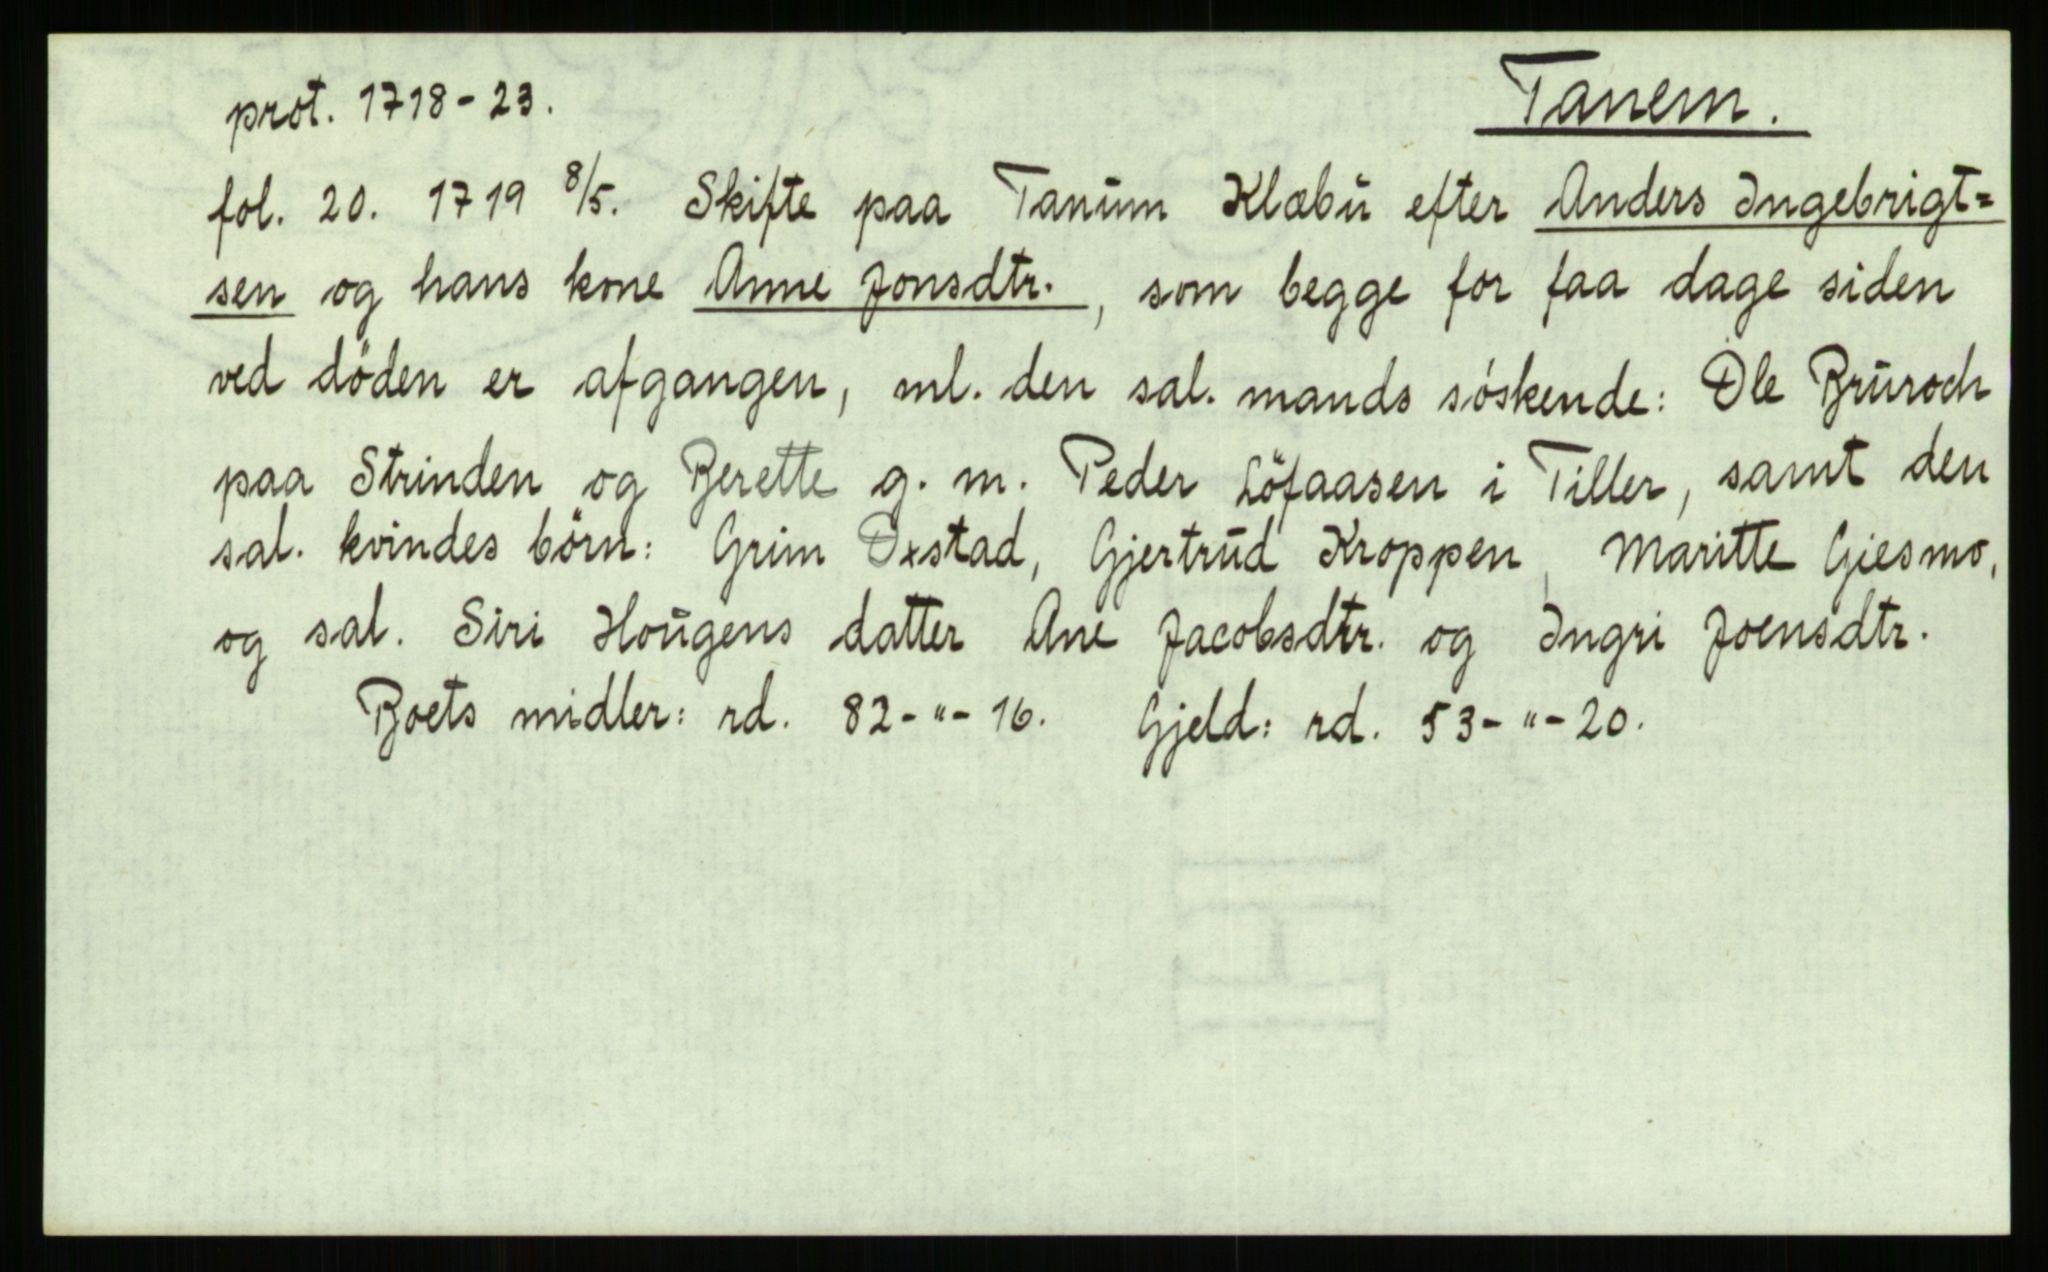 prot. 1718-23.
Tanem.
fol. 20. 1719 8/5. Skifte paa Tanum Klæbu efter Anders Ingebrigt=
sen og hans kone Anne Jonsdtr., som begge for faa dage siden
ved döden er afgangen, ml. den sal. mands söskende: Ole Bruroch
paa Strinden og Berette g. m. Peder Löfaasen i Tiller, samt den
sal. kvindes börn: Grim Oxstad, Gjertrud Kroppen, Maritte Giesmo,
og sal. Siri Hougens datter Ane Jacobsdtr. og Ingri Joensdtr.
Boets midler: rd. 82-"-16. Gjeld: rd. 53-"-20.